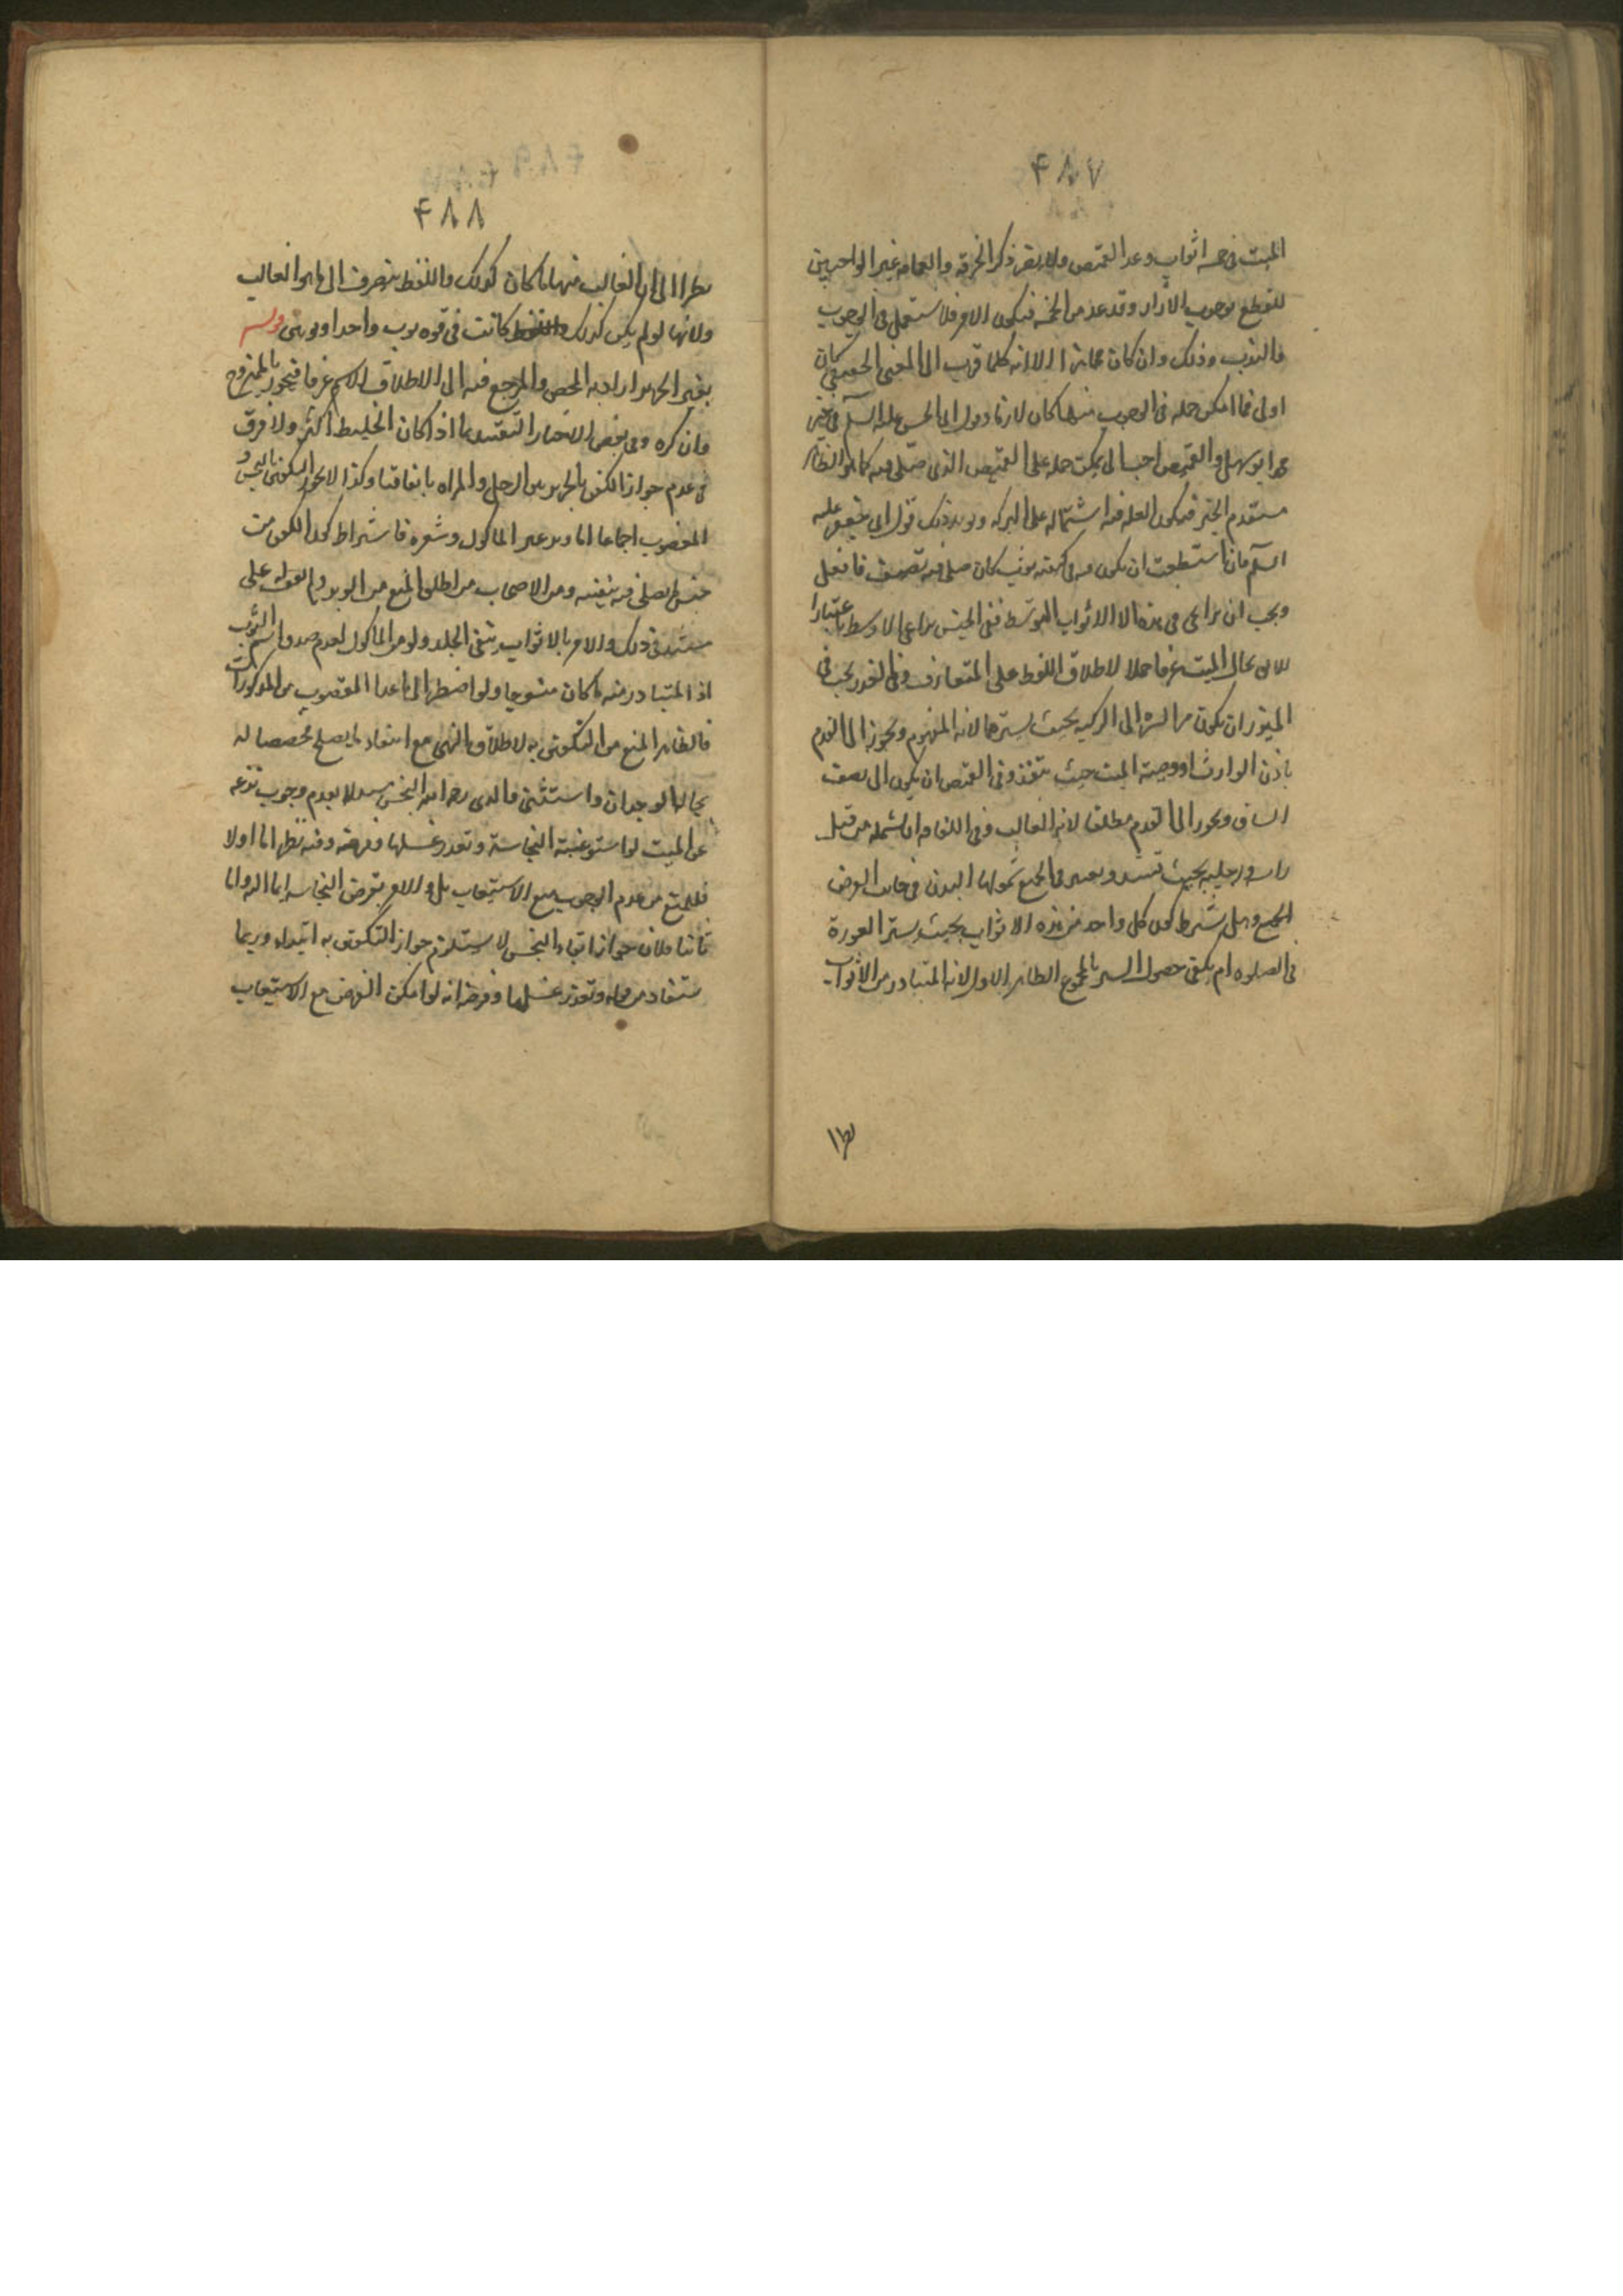 ۴۸۷
الميت فى خمسه اثواب وعد القميص ولا يضر ذكر الخرقه والعمامه غير الواجبين
للقطع بوجوب الازار وقد عد من الخمسة فيكون الامر فلا ستعمل فى الوجوب
فالندب وذلك وان كان مجازا الا انه كلما قرب الى المعنى الحقيقى كان
اولى فما امكن حمله فى الوجوب منها كان لازما دون ابى الحسن عليه السلم فى خبر
محمد بن سهل والقميص احب الى يمكن حمله على القميص الذى صلى فيه كما هو الظاهر
من مقدم الخبر فيكون العله فيه اشتماله على البركه ويؤيد ذلك قول ابى جعفر عليه
السلم فان استطعت ان يكون فى كفنه ثوب كان صلى فيه نظيف فافعل
ويجب ان يراعى فى هذه الاثواب التوسط ففى الجنس يراعى الاوسط باعتبار
اللايق بحال الميت عرفا حملا لاطلاق اللفظ على المتعارف وفى القدر يجب فى
الميزر ان يكون من السره الى الركبه بحيث يسترهما لانه المفهوم ويجوز الى القدم
باذن الوارث او وصية الميت حيث تنفذ وفى القميص ان يكون الى نصف
الساق ويجوز الى القدم مطلقا لانه الغالب وفى اللفافه ان يشمله من قبل
راسه ورجليه بحيث تشد ويعتبر فى الجميع شمولها البدن فى جانب العرض
الجميع وهل يشترط كون كل واحد من هذه الاثواب بحيث يستر العورة
فى الصلوه ام يكفى حصول الستر بالمجموع الظاهر الاول لانه المتبادر من الاثواب
نظرا
۴۸۸
نظرا الى ان الغالب منها ما كان كذلك واللفظ ينصرف الى ما هو الغالب
ولانها لو لم يكن كذلك كانت فى قوه ثوب واحد او ثوبين قوله
بغير الحرير اراد به المحض والمرجع فيه الى الاطلاق الاسم عرفا فيجوز بالممتزج
وان كره وفى بعض الاخبار التقييد بما اذا كان الخليط اكثر ولا فرق
فى عدم جواز التكفين بالحرير بين الرجل والمراه باتفاقنا وكذا لا يجوز التكفين بالنجس و
المغصوب اجماعا اما وبر غير الماكول وشعره فاشتراط كون الكفن من
جنس ما يصلى فيه ينفيه ومن الاصحاب من اطلق المنع من الوبر ولم اقف على
مستند فى ذلك والامر بالاثواب ينفى الجلد ولو من الماكول لعدم صدق اسم الثوب
اذ المتبادر منه ما كان منسوجا ولو اضطر الى ما عدا المغصوب من المذكورات
فالظاهر المنع من التكفين به لاطلاق النهى مع انتفاء ما يصلح مخصصا له
بحالة الوجدان واستثنى والدى رحمه الله النجس مستدلا بعدم وجوب نزعه
عن الميت لو استوعبته النجاسة وتعذر غسلها وقرضه وفيه نظر اما اولا
فللمنع من عدم الوجوب مع الاستيعاب بل والامر بقرض النجاسه اما الـ واما
ثانيا فلان جواز ابقاء النجس لا يستلزم جواز التكفين به ابتداء وربما
ستفاد من قوله وتعذر غسلها وقرضه انه لو امكن القرض مع الاستيعاب